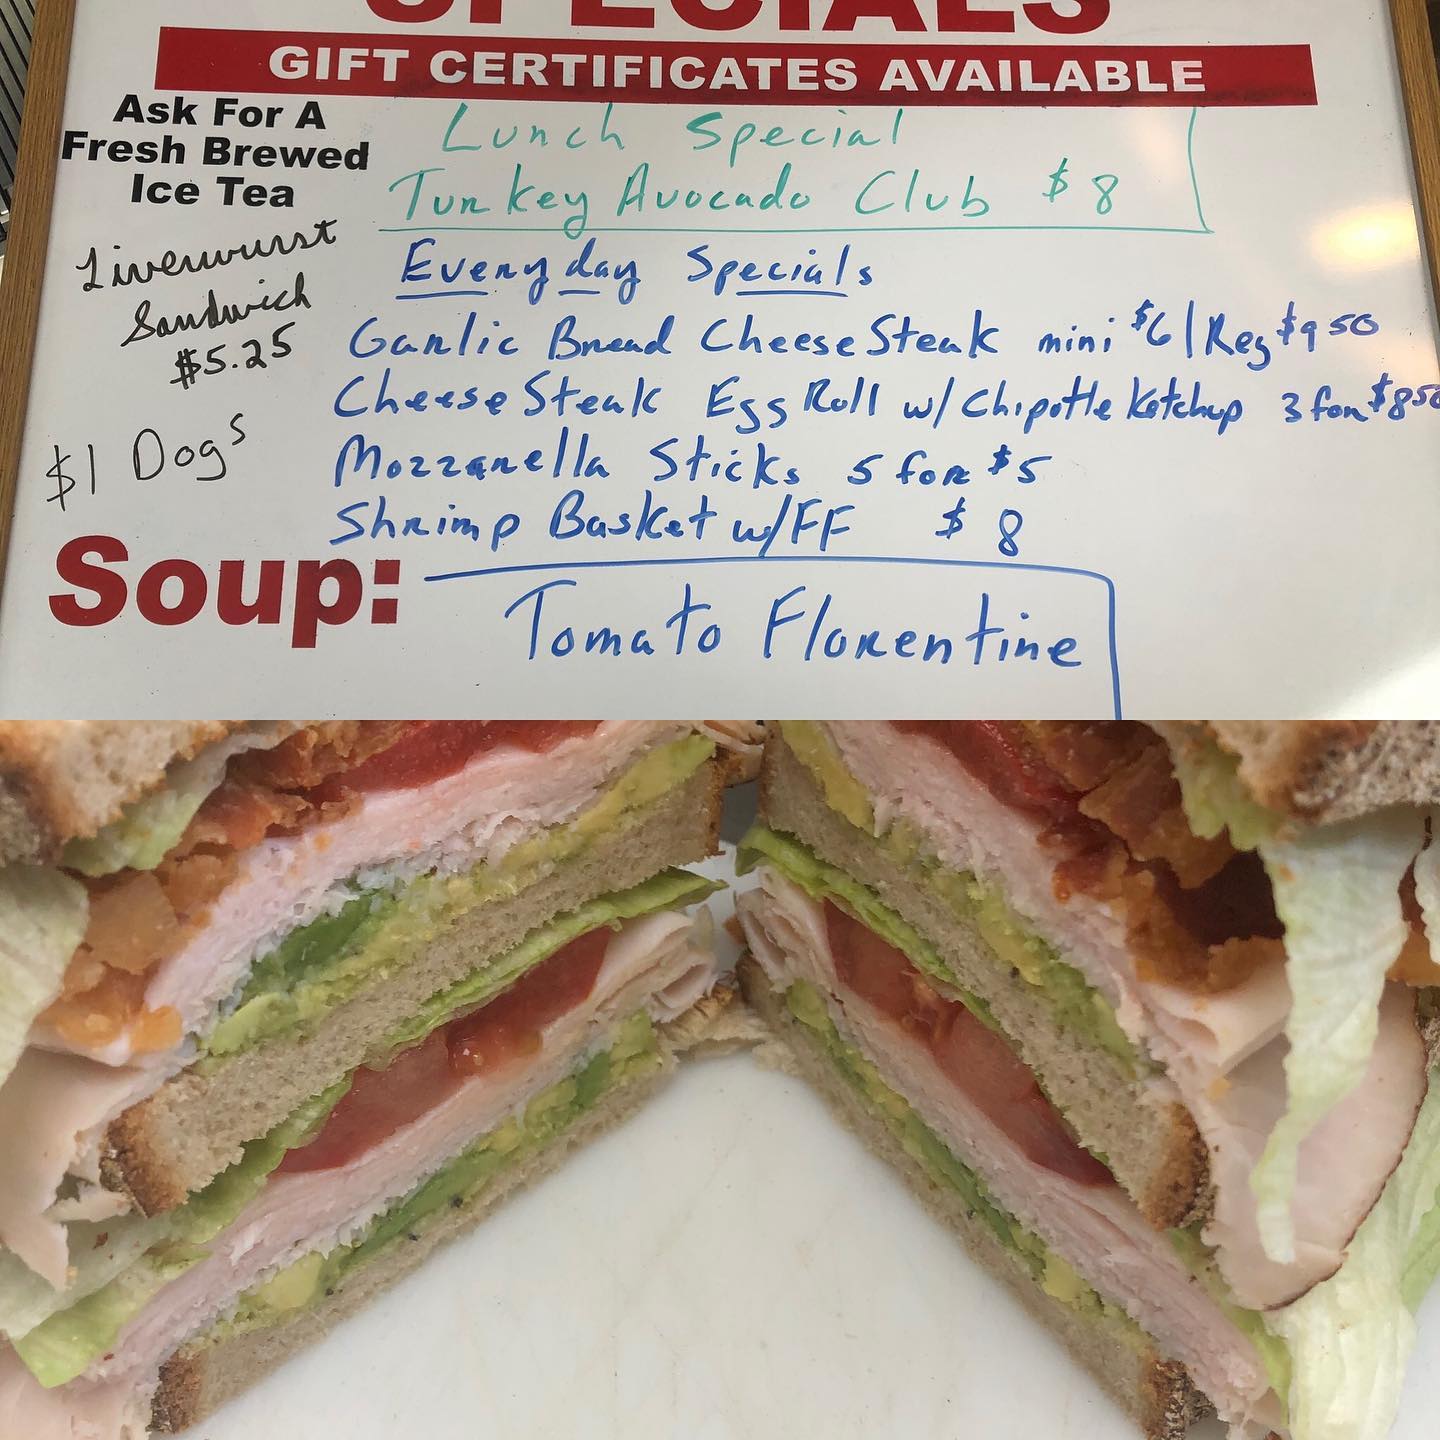 SPECIALS
GIFT CERTIFICATES AVAILABLE
Ask For A
Fresh Brewed
Ice Tea
Lunch Special
Turkey Avocado Club $8
Liverwurst
Sandwich
$5.25
$1 Dogs
Everyday Specials
Garlic Bread Cheese Steak mini $6 | Reg $9 50
Cheese Steak Egg Roll w/ Chipotle Ketchup 3 for $8 50
Mozzarella Sticks 5 for $5
Shrimp Basket w/FF $8
Soup: Tomato Florentine